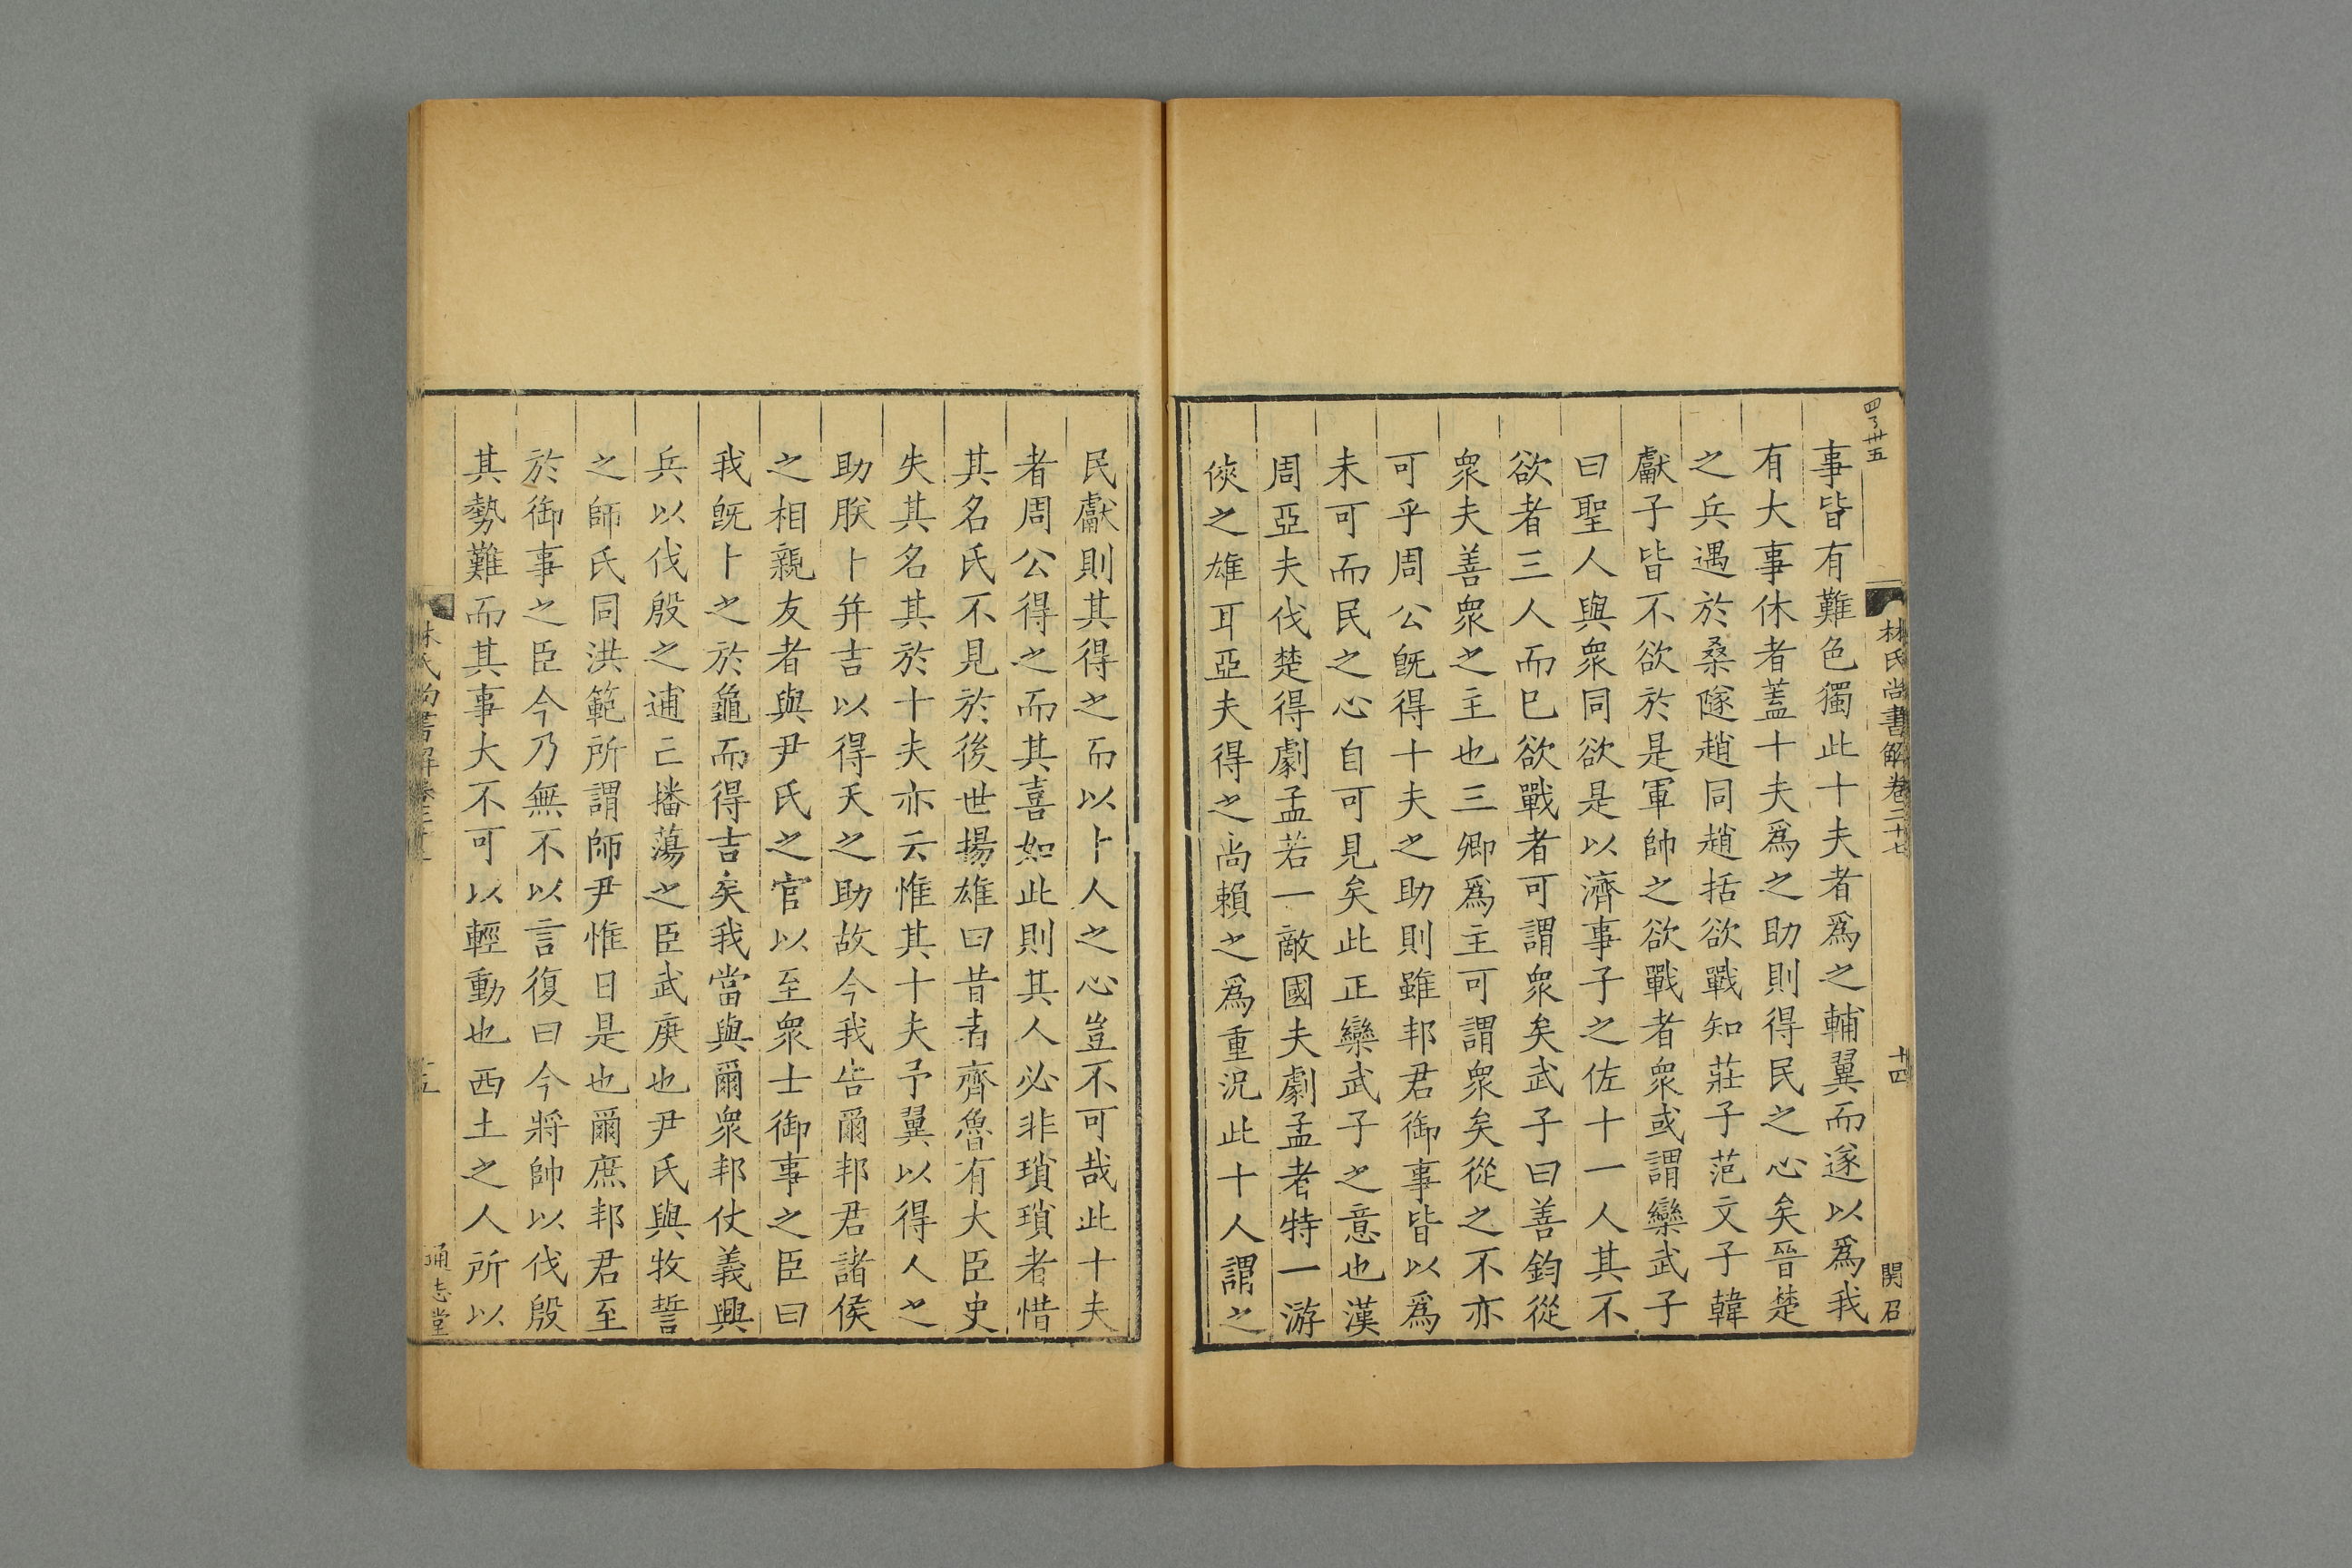 林氏尚書解卷二十七
十四
開召
事皆有難色獨此十夫者爲之輔翼而遂以爲我
有大事休者蓋十夫爲之助則得民之心矣晉楚
之兵遇於桑隧趙同趙括欲戰知莊子范文子韓
獻子皆不欲於是軍帥之欲戰者衆或謂欒武子
曰聖人與衆同欲是以濟事子之佐十一人其不
欲者三人而已欲戰者可謂衆矣武子曰善鈞從
衆夫善衆之主也三卿爲主可謂衆矣從之不亦
可乎周公旣得十夫之助則雖邦君御事皆以爲
未可而民之心自可見矣此正欒武子之意也漢
周亞夫伐楚得劇孟若一敵國夫劇孟者特一游
俠之雄耳亞夫得之尚賴之爲重況此十人謂之
民獻則其得之而以卜人之心豈不可哉此十夫
者周公得之而其喜如此則其人必非瑣瑣者惜
其名氏不見於後世揚雄曰昔者齊魯有大臣史
失其名其於十夫亦云惟其十夫予翼以得人之
助朕卜并吉以得天之助故今我告爾邦君諸侯
之相親友者與尹氏之官以至衆士御事之臣曰
我旣卜之於龜而得吉矣我當與爾衆邦仗義興
兵以伐殷之逋亡播蕩之臣武庚也尹氏與牧誓
之師氏同洪範所謂師尹惟日是也爾庶邦君至
於御事之臣今乃無不以言復曰今將帥以伐殷
其勢難而其事大不可以輕動也西土之人所以
林氏尚書解卷二十七
十五
通志堂